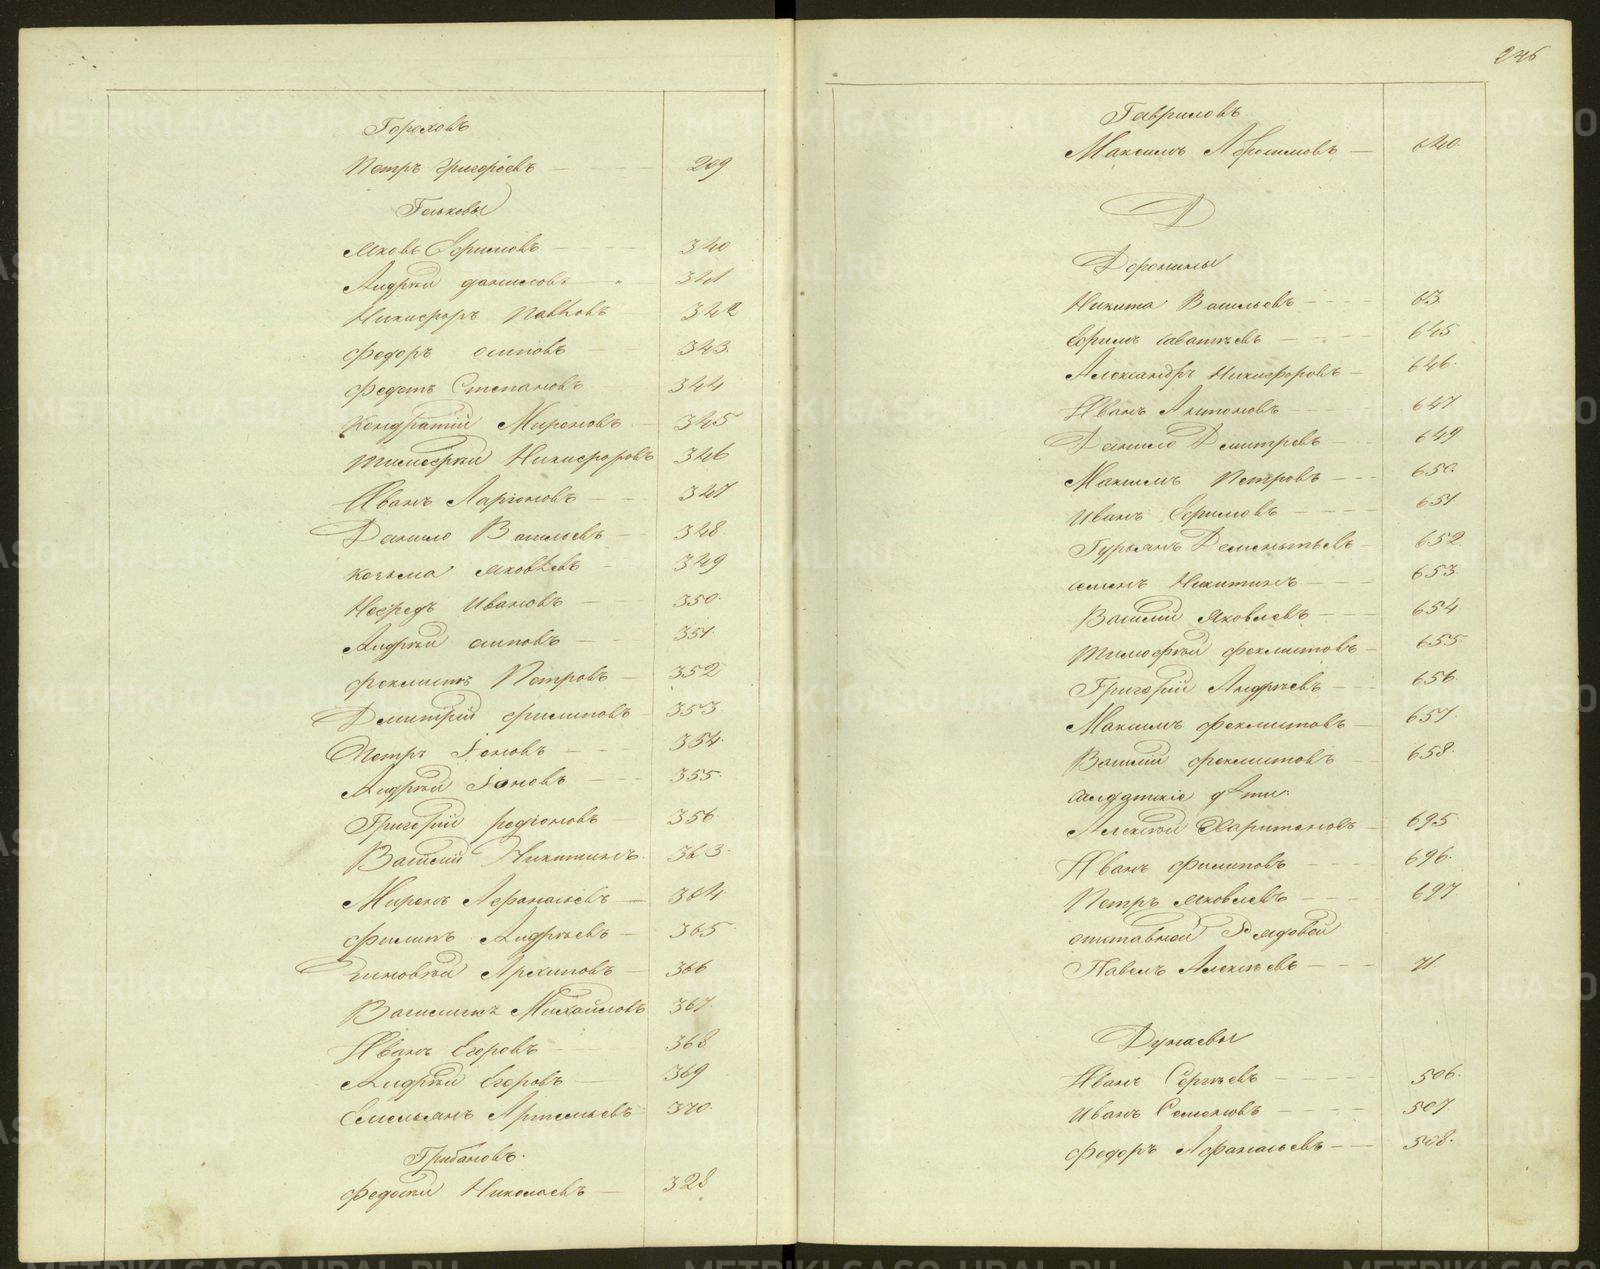 Гороховъ
Петръ Григорьевъ 209
Гаьковы
Яковъ Ефимовъ 340
Андрей Даниловъ 341
Никифоръ Павловъ 342
Федоръ Осиповъ 343.
Федотъ Степановъ 344
Кондратий Мироновъ 345
Тимофей Никифоровъ 346
Иванъ Ларіоновъ 347
Данило Васильевъ 348
Козьма Яковлевъ 349
Нефедъ Ивановъ 350.
Андрей Осиповъ 351.
Феклистъ Петровъ 352
Дмитрій Филиповъ 353.
Петръ Іоновъ 354.
Андрей Іоновъ 355.
Григорій Родіоновъ 356.
Василій Никитинъ. 363.
Миронъ Афанасьевъ 364.
Филипъ Андреевъ 365.
Зиновей Архиповъ 366
Василискъ Михайловъ 367.
Иванъ Егоровъ 368
Андрей Егоровъ 369
Емельянъ Артемьевъ 370.
Грибановъ.
Федосей Николаевъ 328
246
Гавриловъ
Максимъ Абросимовъ 640.
Д
Доронины
Никита Васильевъ 63.
Ефимъ Саватеевъ 645
Александръ Никифоровъ 646.
Иванъ Антоновъ 647
Данило Дмитревъ 649
Максимъ Петровъ 650.
Иванъ Ефимовъ 651
Гурьянъ Дементьевъ 652.
Семенъ Никитинъ 653.
Василій Яковлевъ 654
Тимофей Феклистовъ 655.
Григорій Андреевъ 656.
Максимъ Феклистовъ 657.
Василій Феклистовъ 658.
Салдатскіе дѣти.
Алексей Харитоновъ 695
Иванъ Филиповъ 696.
Петръ Яковлевъ 697
Отставной Рядовой
Павелъ Алексеевъ 71
Дунаевы
Иванъ Сергеевъ 506.
Иванъ Семеновъ 507
Федоръ Афанасьевъ 508.